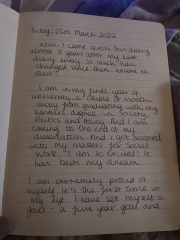 Friday, 25th March 2022
Wow, I came across this diary
almost 5 years after my last
diary entry. So much has
changed since then. Where to
start?
I am in my final year of
university, a couple of months
away from graduating with my
honours degree in Society,
Politics and Policy. And I am
coming to the end of my
dissertation. And I got accepted
into my masters for Social
Work. I am so excited! It
has been my dream.
I am extremely proud of
myself. It's the first time in
my life I have set myself a
goal - a five year goal and